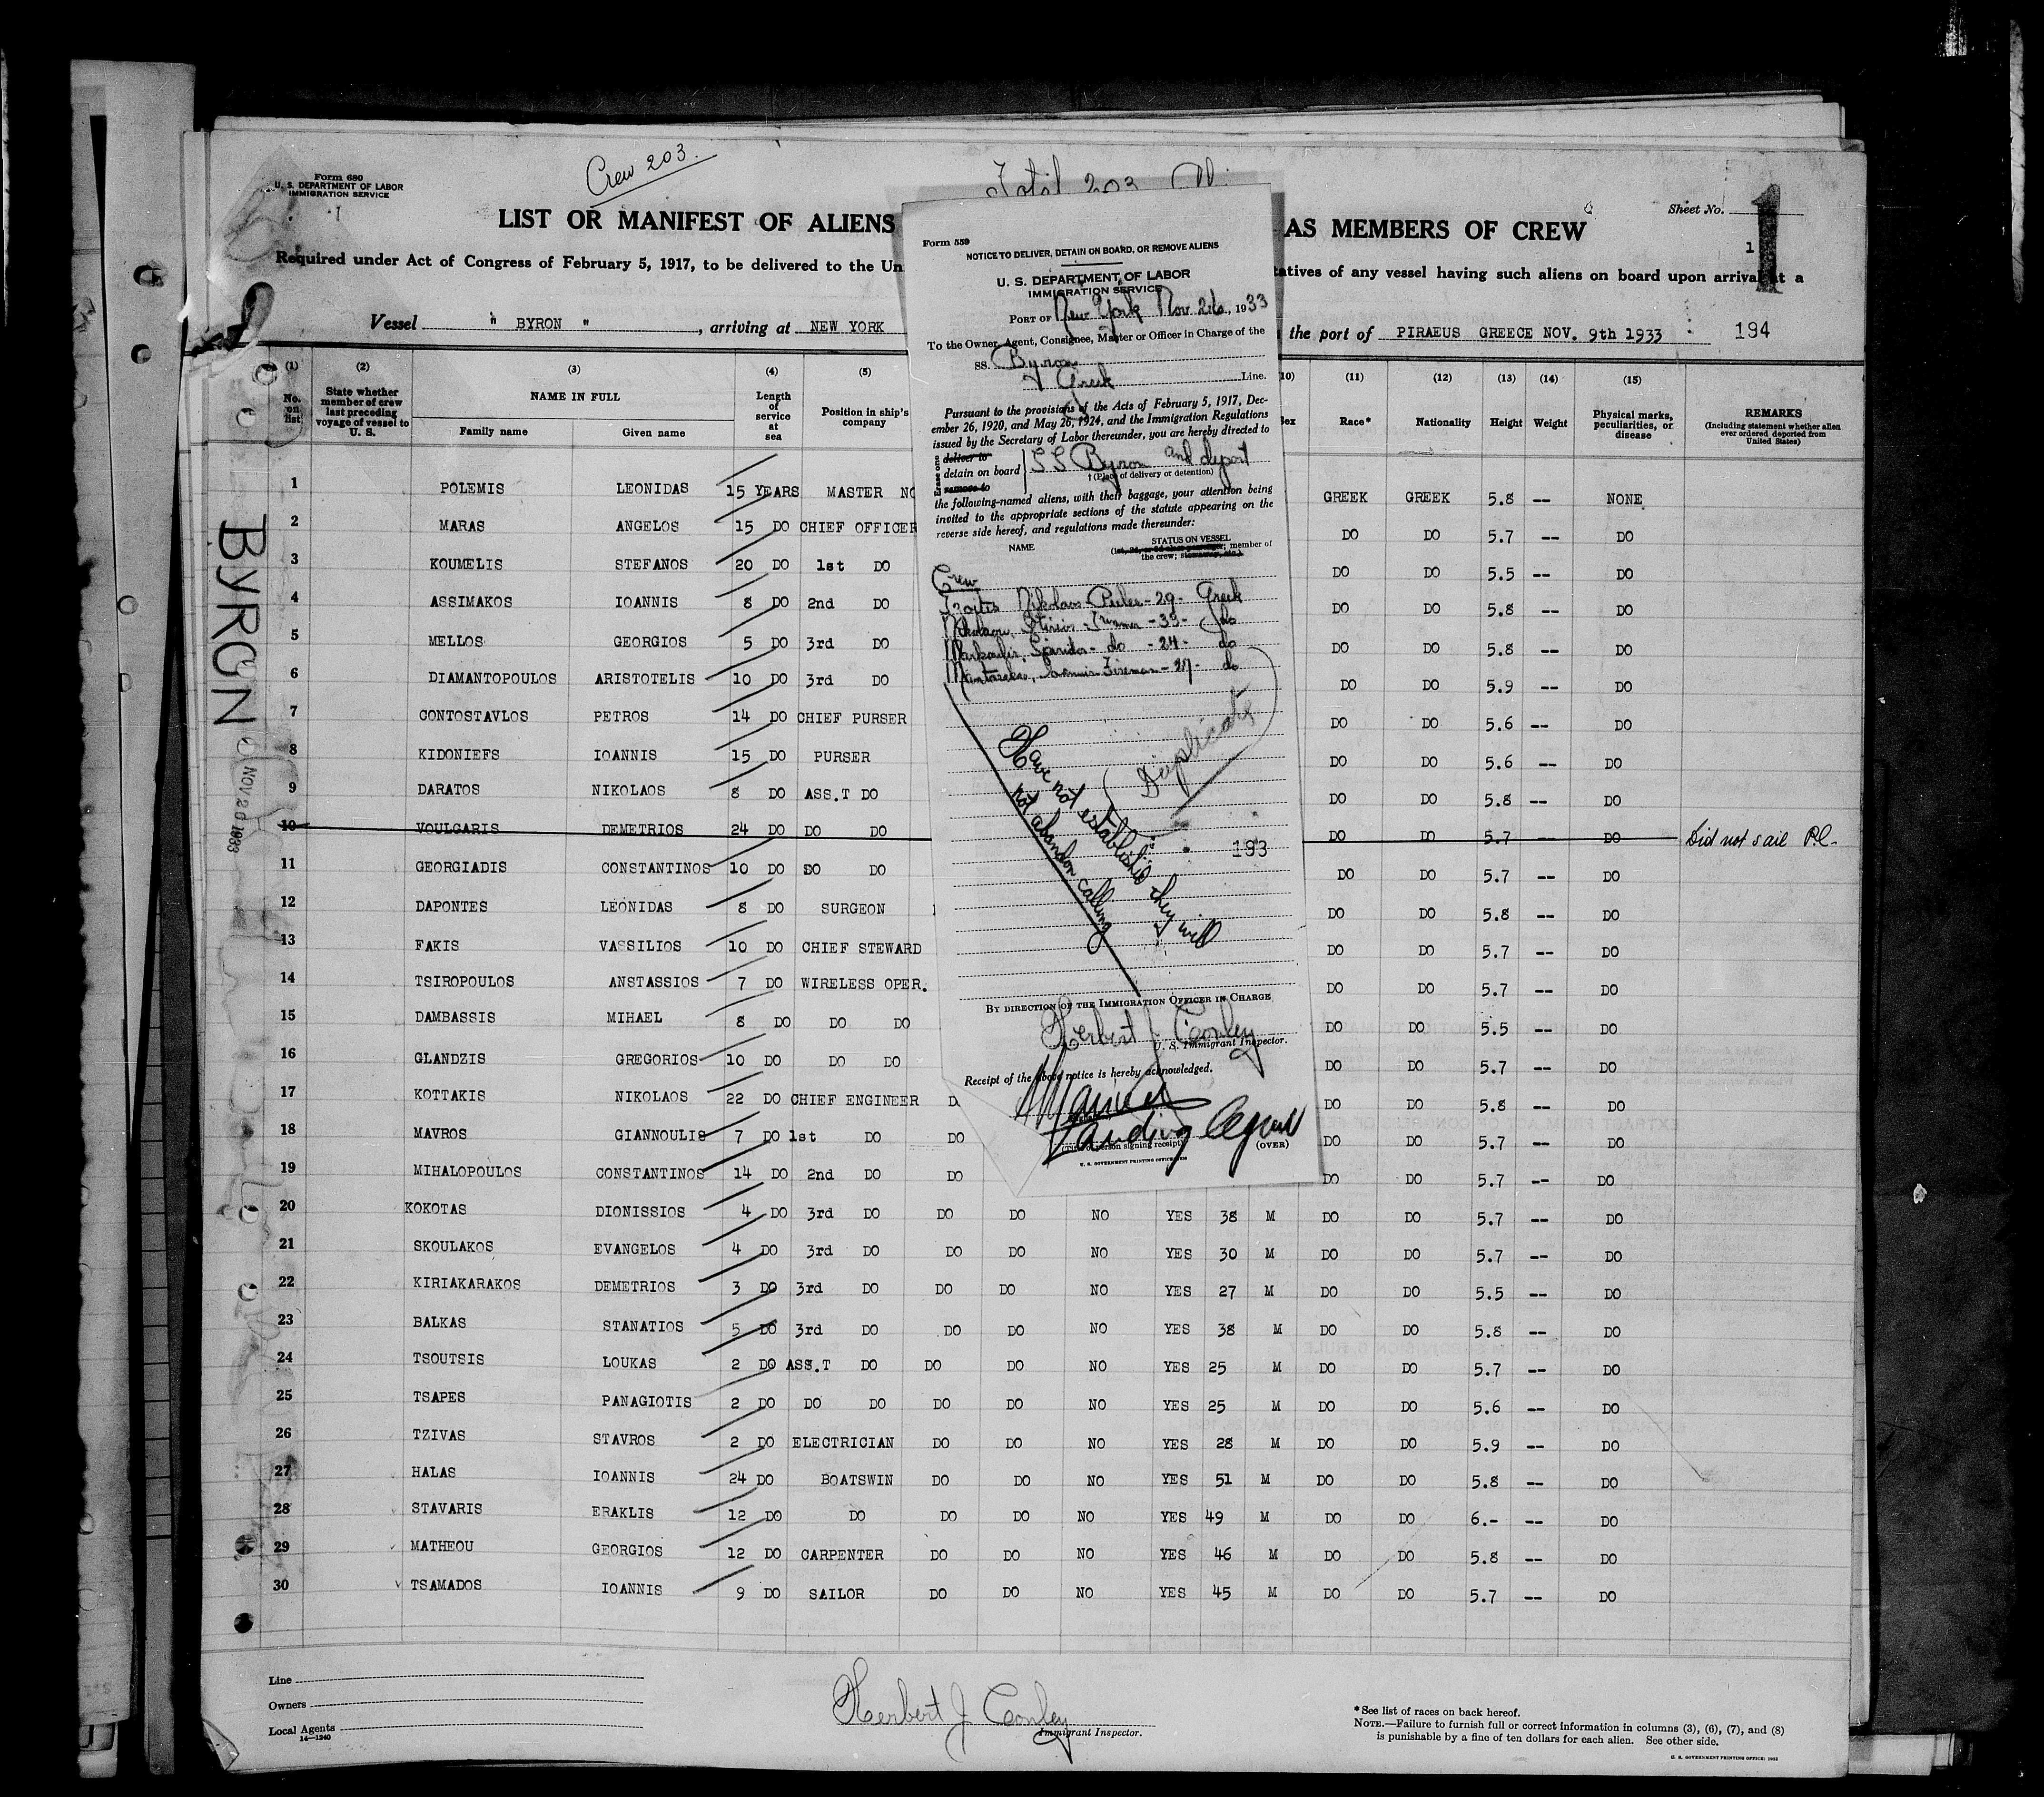 Form 680
U. S. DEPARTMENT OF LABOR
IMMIGRATION SERVICE
Crew 203.
Total 203
LIST OR MANIFEST OF ALIENS AS MEMBERS OF CREW
Sheet No. 1
1
Required under Act of Congress of February 5, 1917, to be delivered to the Un tatives of any vessel having such aliens on board upon arrival at a
Vessel " BYRON " , arriving at NEW YORK the port of PIRAEUS GREECE NOV. 9th 1933 194
(1) (2) (3) (4) (5) (10) (11) (12) (13) (14) (15)
No. on list State whether member of crew last preceding voyage of vessel to U. S. NAME IN FULL Family name Given name Length of service at sea Position in ship's company Sex Race* Nationality Height Weight Physical marks, peculiarities, or disease REMARKS (Including statement whether alien ever ordered deported from United States)
1 POLEMIS LEONIDAS 15 YEARS MASTER NO GREEK GREEK 5.8 -- NONE
2 MARAS ANGELOS 15 DO CHIEF OFFICER DO DO 5.7 -- DO
3 KOUMELIS STEFANOS 20 DO 1st DO DO DO 5.5 -- DO
4 ASSIMAKOS IOANNIS 8 DO 2nd DO DO DO 5.8 -- DO
5 MELLOS GEORGIOS 5 DO 3rd DO DO DO 5.8 -- DO
6 DIAMANTOPOULOS ARISTOTELIS 10 DO 3rd DO DO DO 5.9 -- DO
7 CONTOSTAVLOS PETROS 14 DO CHIEF PURSER DO DO 5.6 -- DO
8 KIDONIEFS IOANNIS 15 DO PURSER DO DO 5.6 -- DO
9 DARATOS NIKOLAOS 8 DO ASS.T DO DO DO 5.8 -- DO
10 VOULGARIS DEMETRIOS 24 DO DO DO DO DO 5.7 -- DO Did not sail P.C.
11 GEORGIADIS CONSTANTINOS 10 DO DO DO DO DO 5.7 -- DO
12 DAPONTES LEONIDAS 8 DO SURGEON DO DO 5.8 -- DO
13 FAKIS VASSILIOS 10 DO CHIEF STEWARD DO DO 5.7 -- DO
14 TSIROPOULOS ANSTASSIOS 7 DO WIRELESS OPER. DO DO 5.7 -- DO
15 DAMBASSIS MIHAEL 8 DO DO DO DO DO 5.5 -- DO
16 GLANDZIS GREGORIOS 10 DO DO DO DO DO 5.7 -- DO
17 KOTTAKIS NIKOLAOS 22 DO CHIEF ENGINEER D DO DO 5.8 -- DO
18 MAVROS GIANNOULIS 7 DO 1st DO DO DO DO 5.7 -- DO
19 MIHALOPOULOS CONSTANTINOS 14 DO 2nd DO DO DO DO 5.7 -- DO
20 KOKOTAS DIONISSIOS 4 DO 3rd DO DO DO NO YES 38 M DO DO 5.7 -- DO
21 SKOULAKOS EVANGELOS 4 DO 3rd DO DO DO NO YES 30 M DO DO 5.7 -- DO
22 KIRIAKARAKOS DEMETRIOS 3 DO 3rd DO DO DO NO YES 27 M DO DO 5.5 -- DO
23 BALKAS STANATIOS 5 DO 3rd DO DO DO NO YES 38 M DO DO 5.8 -- DO
24 TSOUTSIS LOUKAS 2 DO ASS.T DO DO DO NO YES 25 M DO DO 5.7 -- DO
25 TSAPES PANAGIOTIS 2 DO DO DO DO DO NO YES 25 M DO DO 5.6 -- DO
26 TZIVAS STAVROS 2 DO ELECTRICIAN DO DO NO YES 28 M DO DO 5.9 -- DO
27 HALAS IOANNIS 24 DO BOATSWIN DO DO NO YES 51 M DO DO 5.8 -- DO
28 STAVARIS ERAKLIS 12 DO DO DO DO NO YES 49 M DO DO 6.- -- DO
29 MATHEOU GEORGIOS 12 DO CARPENTER DO DO NO YES 46 M DO DO 5.8 -- DO
30 TSAMADOS IOANNIS 9 DO SAILOR DO DO NO YES 45 M DO DO 5.7 -- DO
BYRON
NOV 26 1933
Form 559
NOTICE TO DELIVER, DETAIN ON BOARD, OR REMOVE ALIENS
U. S. DEPARTMENT OF LABOR
IMMIGRATION SERVICE
PORT OF New York Nov 26, 1933
To the Owner, Agent, Consignee, Master or Officer in Charge of the
SS. Byron
Greek Line.
Pursuant to the provisions of the Acts of February 5, 1917, Dec-
ember 26, 1920, and May 26, 1924, and the Immigration Regulations
issued by the Secretary of Labor thereunder, you are hereby directed to
Erase one
deliver to
detain on board SS Byron and deport
remove to
†(Place of delivery or detention)
the following-named aliens, with their baggage, your attention being
invited to the appropriate sections of the statute appearing on the
reverse side hereof, and regulations made thereunder:
NAME STATUS ON VESSEL
(1st, 2d, or 3d class passenger; member of
the crew; stowaway, etc.)
Crew
Nikolaos - Peeler - 29 - Greek
Nikolaou, - Trimmer - 33 - do
Markoulis, Spiridon - do - 24 - do
Fireman - 27 - do
Duplicate
Have not established they will
not abandon calling
193
BY DIRECTION OF THE IMMIGRATION OFFICER IN CHARGE
Herbert J. Conley
U. S. Immigrant Inspector.
Receipt of the above notice is hereby acknowledged.
Landing Agent
(Title of person signing receipt)
(OVER)
U. S. GOVERNMENT PRINTING OFFICE
Line
Owners
Local Agents
14—1240
Herbert J. Conley
Immigrant Inspector.
*See list of races on back hereof.
NOTE.—Failure to furnish full or correct information in columns (3), (6), (7), and (8)
is punishable by a fine of ten dollars for each alien. See other side.
U. S. GOVERNMENT PRINTING OFFICE: 1932